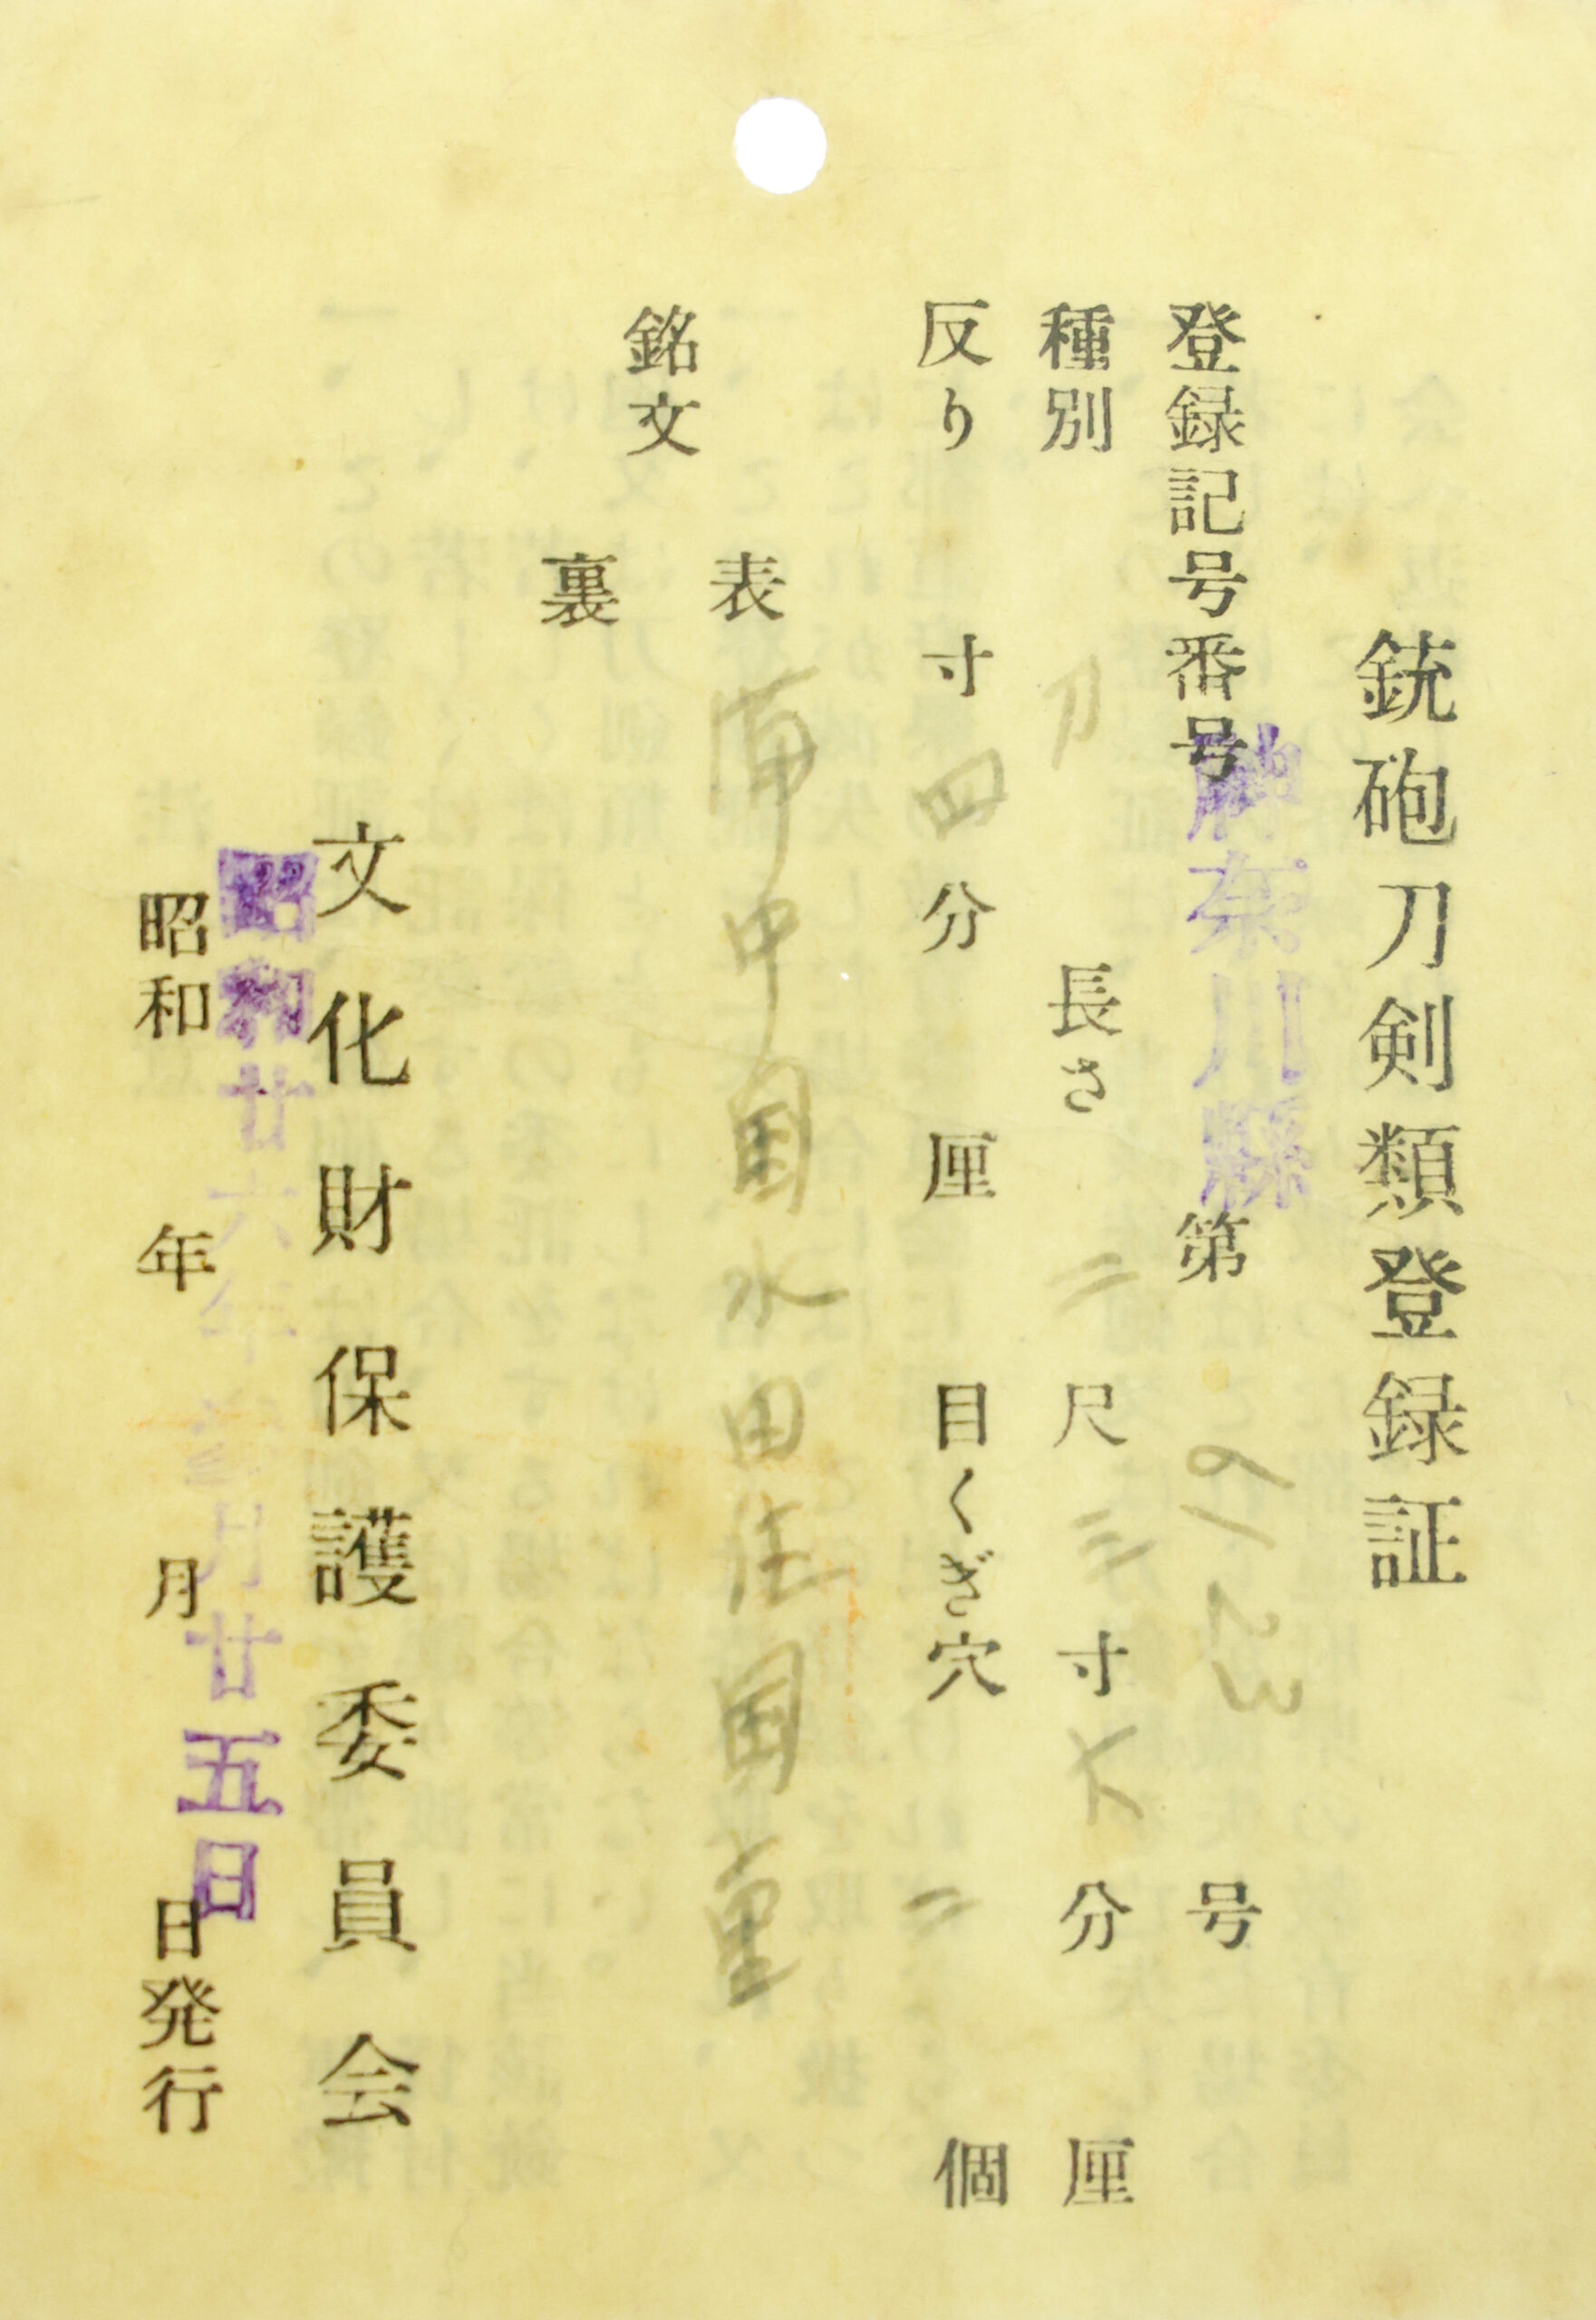 銃砲刀剣類登録証
登録記号番号 神奈川縣 第 号
種別 刀 長さ 二尺三寸 分 厘
反り 寸四分 厘 目くぎ穴 二個
銘文
表 備中国水田住国重
裏
文化財保護委員会
昭和廿六年 月廿五日
昭和 年 月 日発行